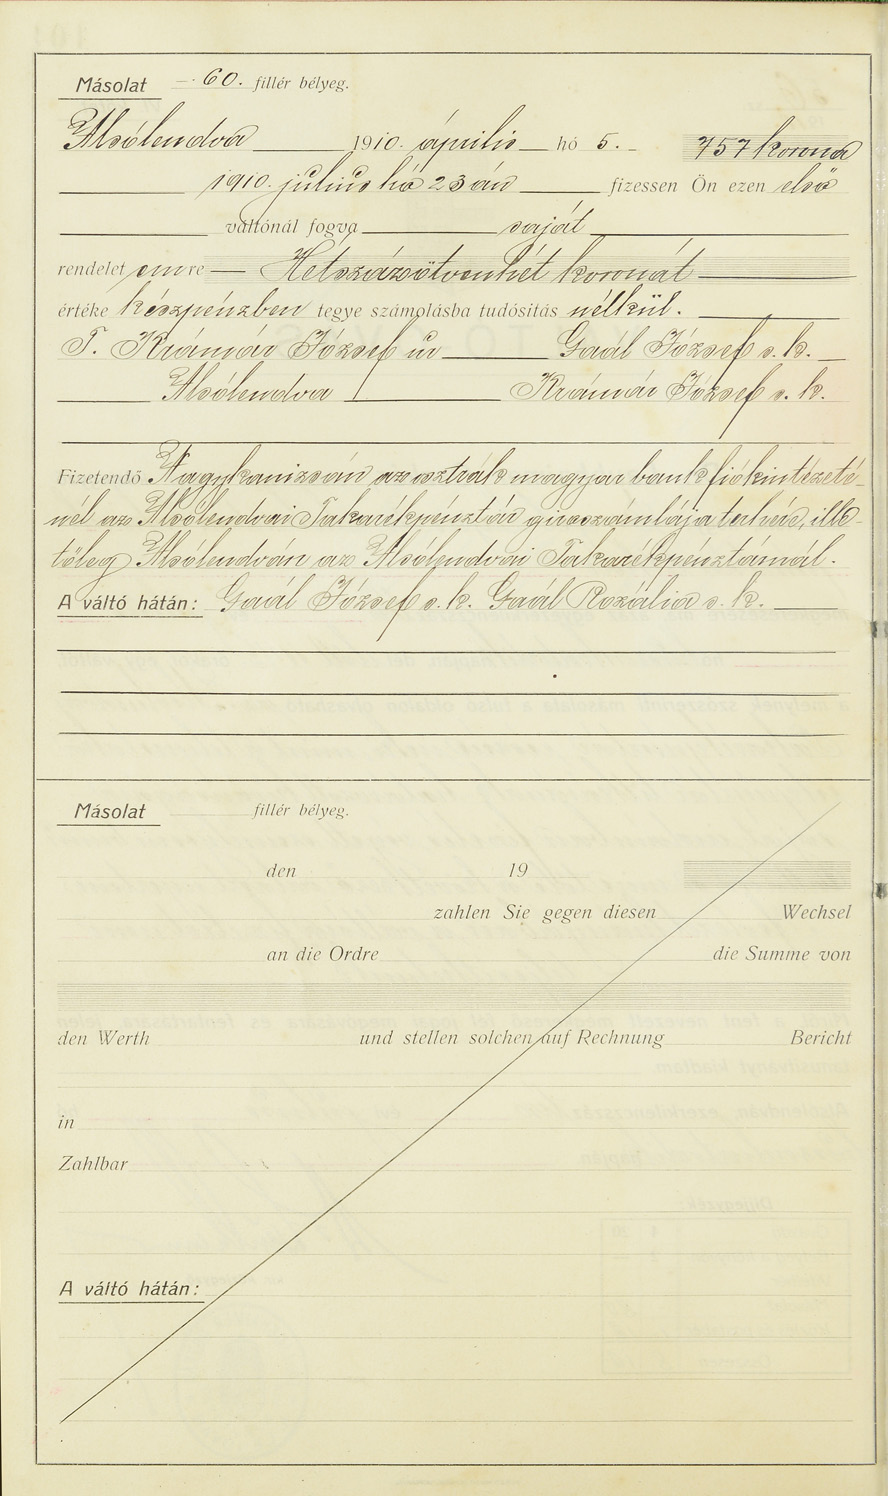 Másolat 60. fillér bélyeg.
Alsólendva 1910. április hó 5. 757 korona
1910. julius hó 23 án fizessen Ön ezen első
váltónál fogva saját
rendelet emre Hétszázötvenhét koronát
értéke készpénzben tegye számolásba tudósítás nélkül.
T. Krámár József úr Gaál József s. k.
Alsólendva Krámár József s. k.
Fizetendő Nagykanizsán az osztrák magyar bank fiókintézeté-
nél az Alsólendvai Takarékpénztár giroszámlája terhére, ille-
tőleg Alsólendván az Alsólendvai Takarékpénztárnál.
A váltó hátán: Gaál József s. k. Gaál Rozália s. k.
Másolat fillér bélyeg.
den 19
zahlen Sie gegen diesen Wechsel
an die Ordre die Summe von
den Werth und stellen solchen auf Rechnung Bericht
in
Zahlbar
A váltó hátán: